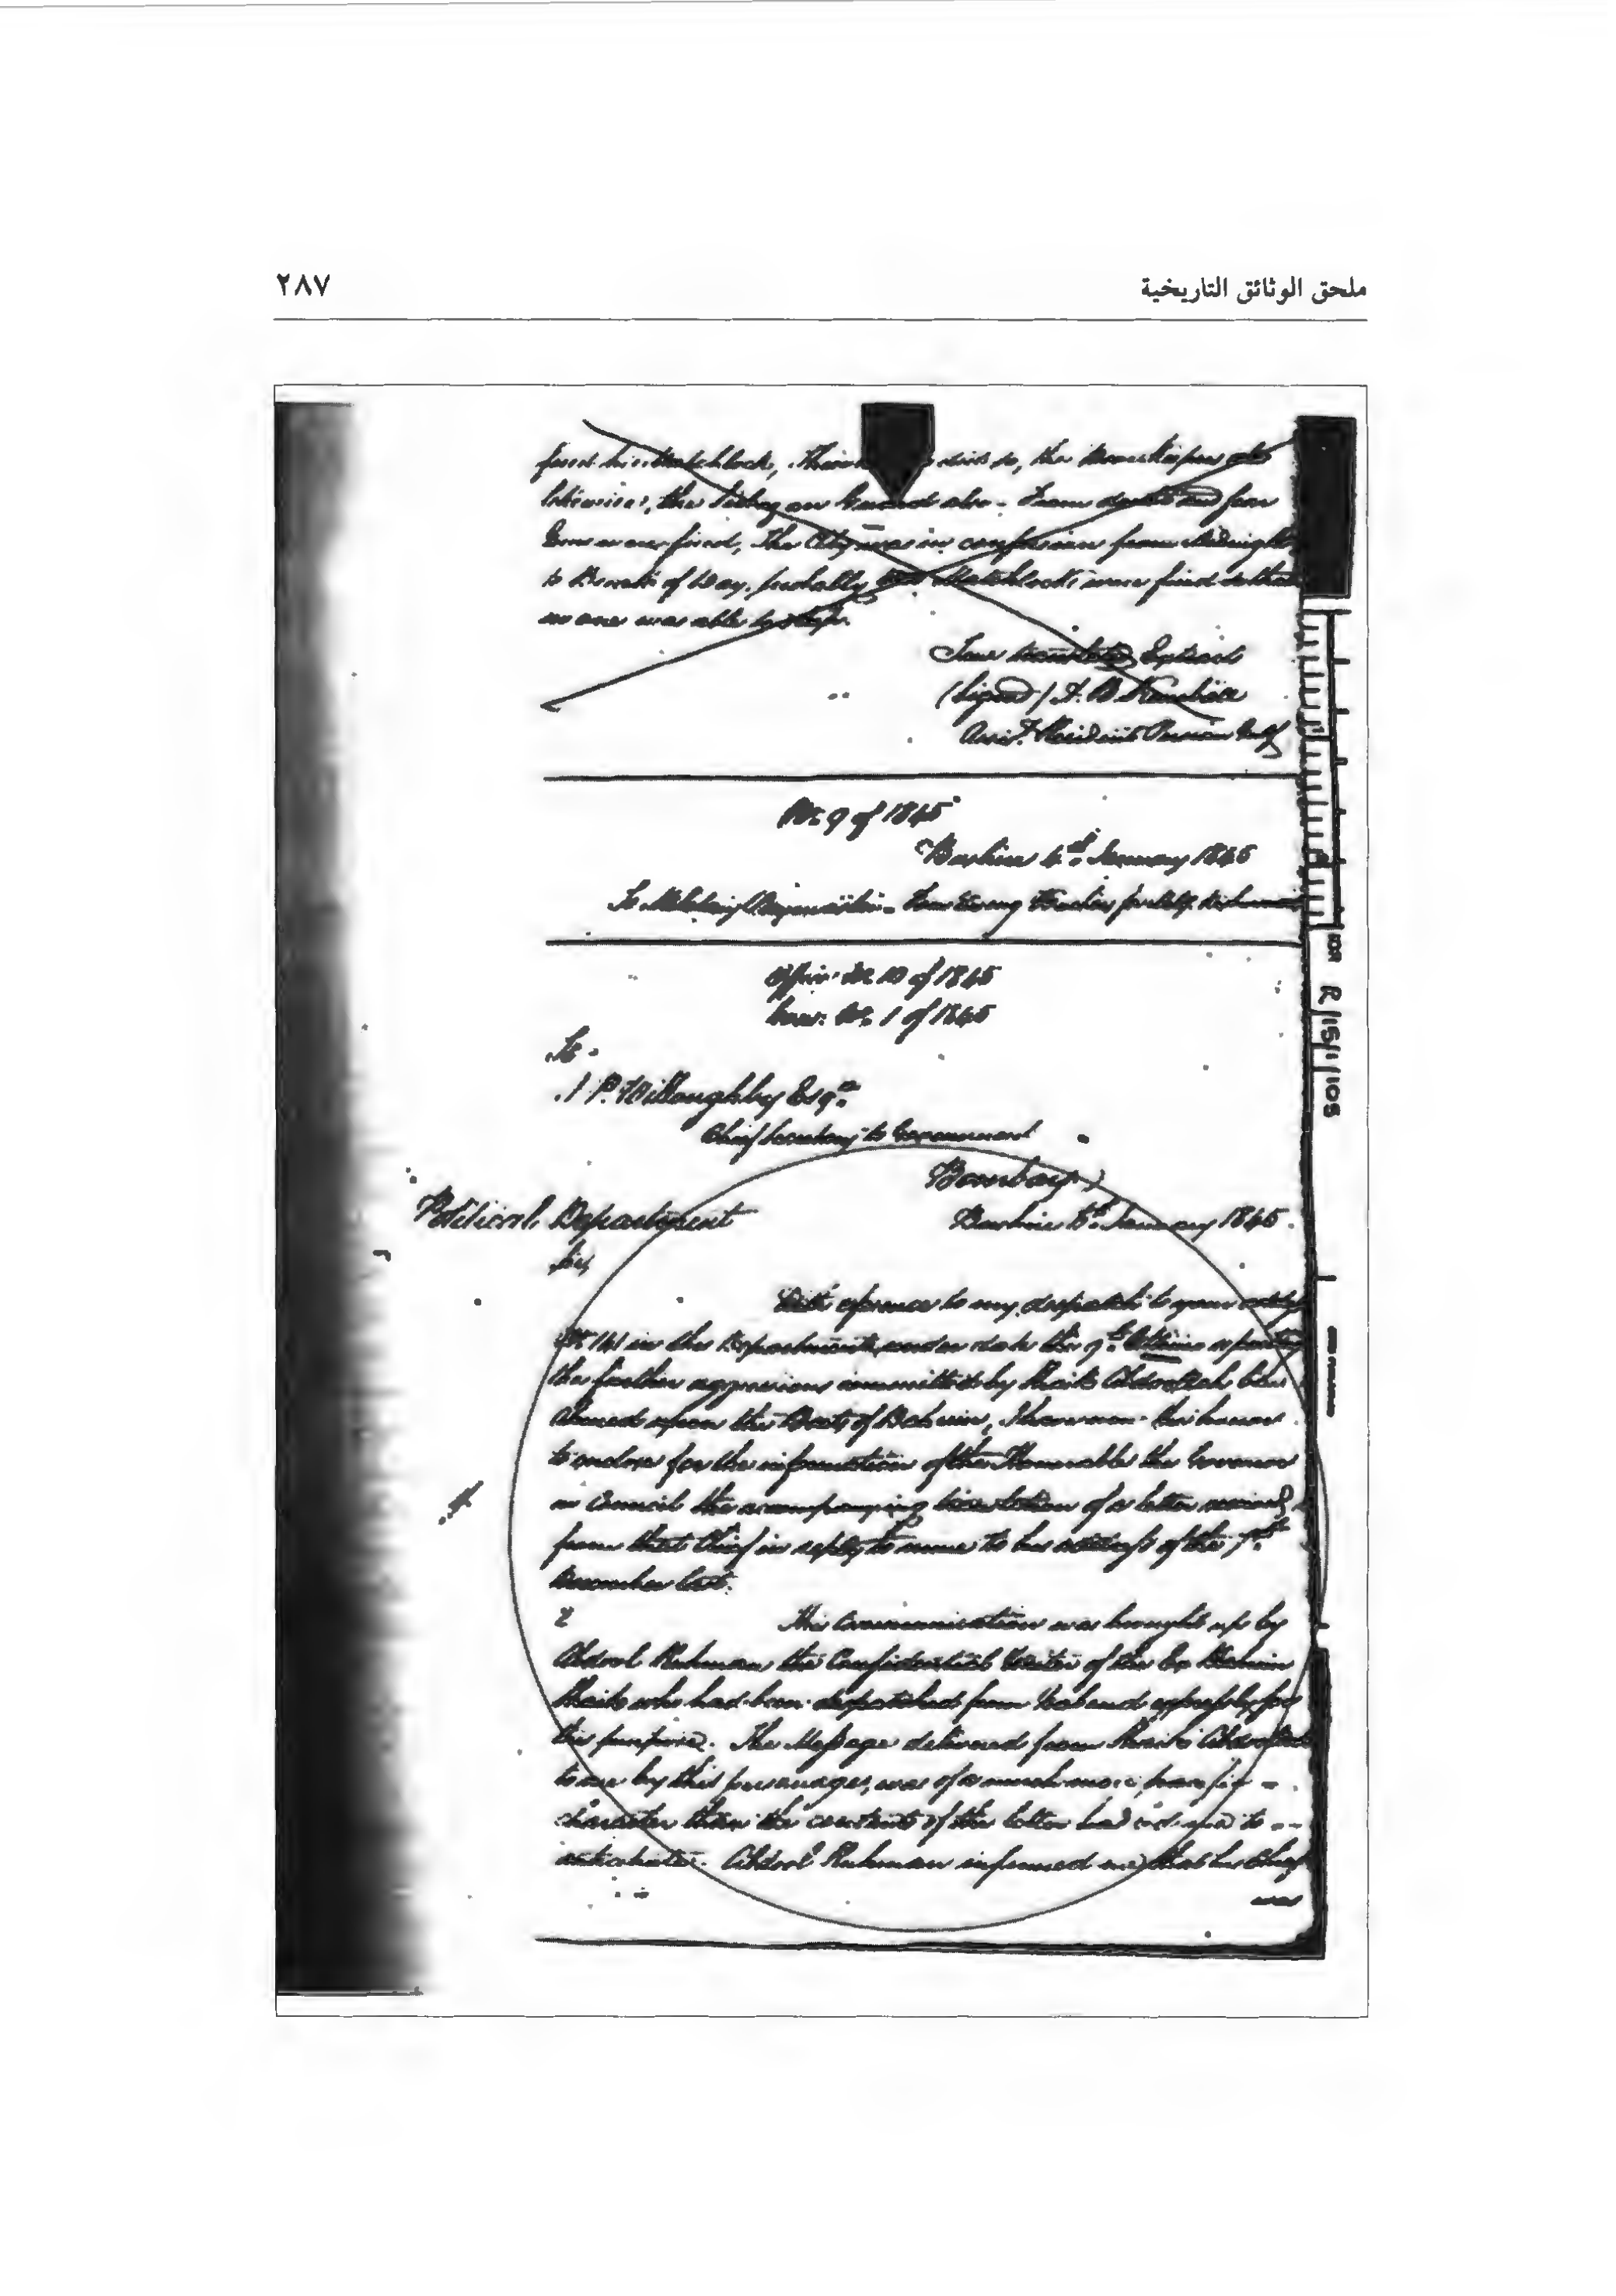 ملحق الوثائق التاريخية
٢٨٧
fired his Matchlock, did so, the Doorkeeper
likewise, the on Guard also - From far
Guns were fired, The City was in confusion from Midnight
to Break of Day, probably Matchlocks were fired so that
no one was able to sleep.
True translated Extract
(Signed) A. B. Kemball
Assist. Resident Persian Gulf
No. 9 of 1845
Bushire 4th January 1845
To
Office No. 10 of 1845
No. 1 of 1845
To
J. P. Willoughby Esqre.
Chief Secretary to Government
Bombay
Political Department
Bushire 5th January 1845.
Sir,
With reference to my despatch to your
No. 141 in this Department under date the 9th reporting
the further aggressions committed by Shaik Abdoollah bin
Ahmed upon the Boats of Bahrein, I have now the honor
to enclose for the information of the Honorable the Governor
in Council the accompanying translation of a letter received
from that Chief in reply to mine to his address of the 7th
December last.
2 This Communication was brought up by
Abdool Ruhman the Confidential Writer of the Ex Bahrein
Shaik who had been despatched from expressly for
this purpose. The Message delivered from Shaik Abdoollah
to me by this personage, was of a much more pacific
character than the contents of the letter had induced me to
anticipate. Abdool Ruhman informed me that his Chief
was
IOR R/15/1/105